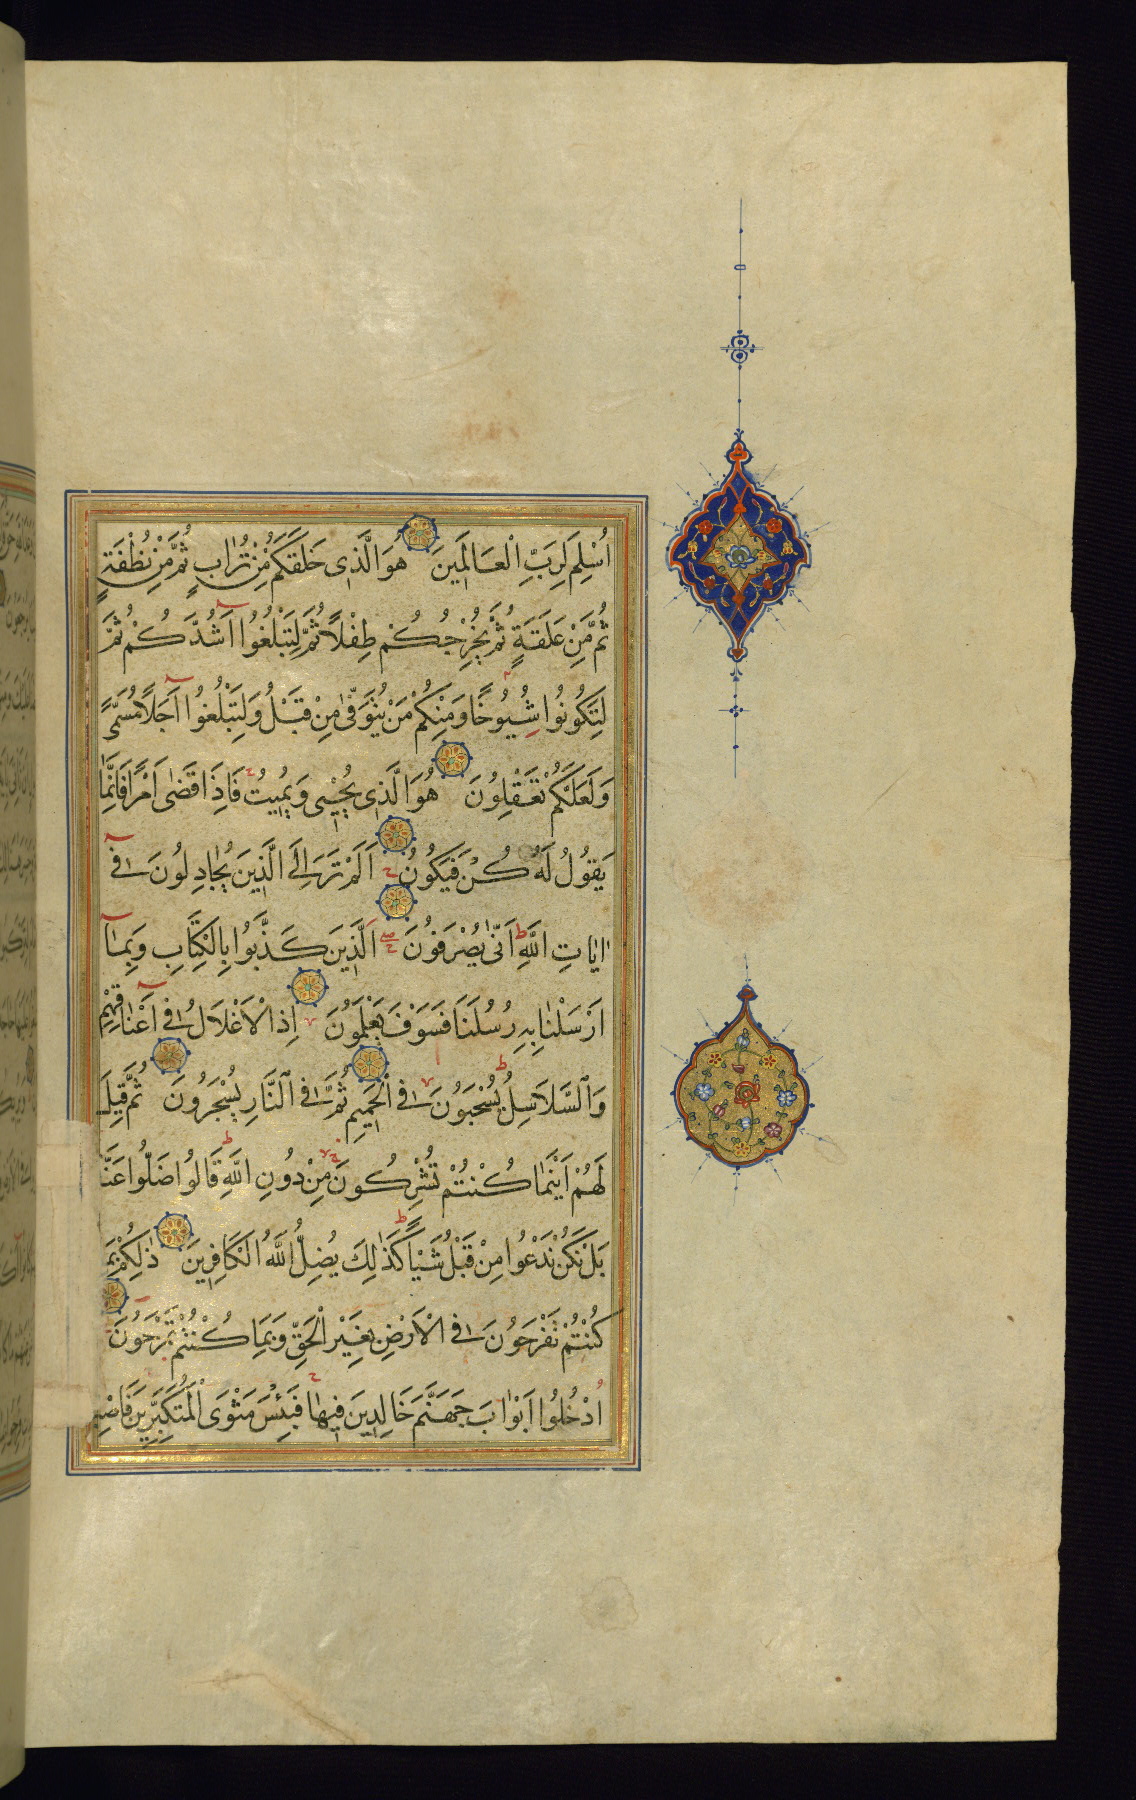 اُسْلِمَ لِرَبِّ الْعَالَمِينَ هُوَ الَّذِى خَلَقَكُمْ مِنْ تُرَابٍ ثُمَّ مِنْ نُطْفَةٍ
ثُمَّ مِنْ عَلَقَةٍ ثُمَّ يُخْرِجُكُمْ طِفْلًا ثُمَّ لِتَبْلُغُوا اَشُدَّكُمْ ثُمَّ
لِتَكُونُوا شُيُوخًا وَمِنْكُمْ مَنْ يُتَوَفّٰى مِنْ قَبْلُ وَلِتَبْلُغُوا اَجَلًا مُسَمًّى
وَلَعَلَّكُمْ تَعْقِلُونَ هُوَ الَّذِى يُحْيِى وَيُمِيتُ فَاِذَا قَضٰى اَمْرًا فَاِنَّمَا
يَقُولُ لَهُ كُنْ فَيَكُونُ اَلَمْ تَرَ اِلَى الَّذِينَ يُجَادِلُونَ فِى
اٰيَاتِ اللّٰهِ اَنّٰى يُصْرَفُونَ اَلَّذِينَ كَذَّبُوا بِالْكِتَابِ وَبِمَا
اَرْسَلْنَا بِهِ رُسُلَنَا فَسَوْفَ يَعْلَمُونَ اِذِ الْاَغْلَالُ فِى اَعْنَاقِهِمْ
وَالسَّلَاسِلُ يُسْحَبُونَ فِى الْحَمِيمِ ثُمَّ فِى النَّارِ يُسْجَرُونَ ثُمَّ قِيلَ
لَهُمْ اَيْنَمَا كُنْتُمْ تُشْرِكُونَ مِنْ دُونِ اللّٰهِ قَالُوا ضَلُّوا عَنَّا
بَلْ نَكُنْ نَدْعُوا مِنْ قَبْلُ شَيْـًٔا كَذٰلِكَ يُضِلُّ اللّٰهُ الْكَافِرِينَ ذٰلِكُمْ بِمَا
كُنْتُمْ تَفْرَحُونَ فِى الْاَرْضِ بِغَيْرِ الْحَقِّ وَبِمَا كُنْتُمْ تَمْرَحُونَ
اُدْخُلُوا اَبْوَابَ جَهَنَّمَ خَالِدِينَ فِيهَا فَبِئْسَ مَثْوَى الْمُتَكَبِّرِينَ فَاصْبِرْ